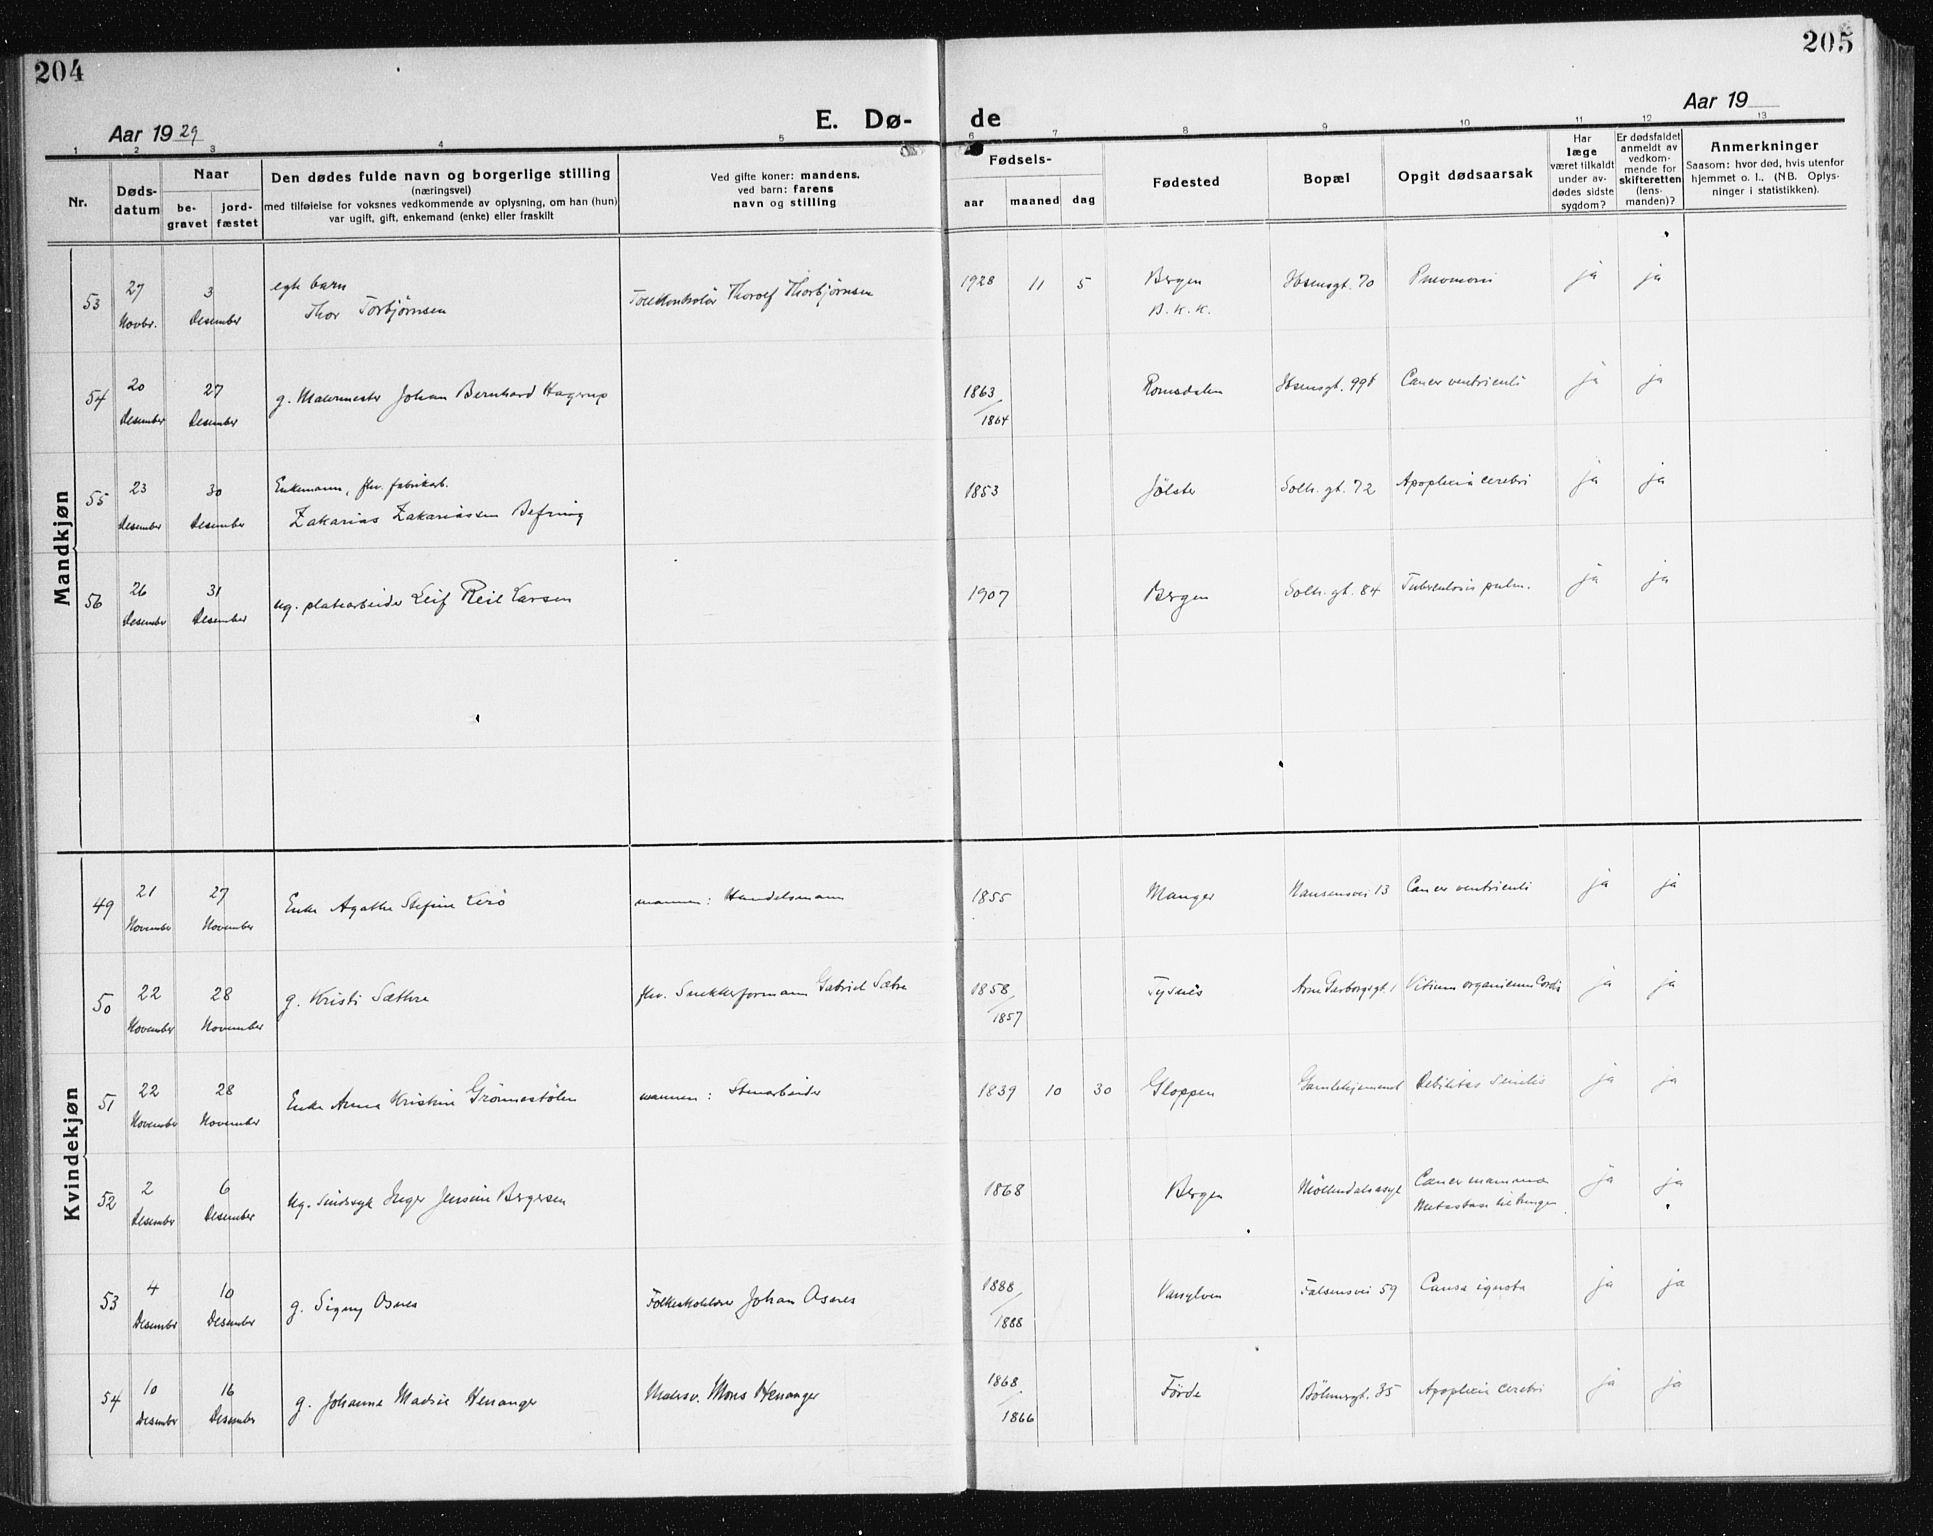 204
205
Aar 1929
E. Dø-
de
Aar 19
1 2 3 4 5 6 7 8 9 10 11 12 13
Nr.
Døds-
datum
Naar
be-
gravet
jord-
fæstet
Den dødes fulde navn og borgerlige stilling
(næringsvei)
med tilføielse for voksnes vedkommende av oplysning, om han (hun)
var ugift, gift, enkemand (enke) eller fraskilt
Ved gifte koner: mandens.
ved barn: farens
navn og stilling
Fødsels-
aar
maaned
dag
Fødested
Bopæl
Opgit dødsaarsak
Har
læge
været tilkaldt
under av-
dødes sidste
sygdom?
Er dødsfaldet
anmeldt av
vedkom-
mende for
skifteretten
(lens-
manden)?
Anmerkninger
Saasom: hvor død, hvis utenfor
hjemmet o. l.. (NB. Oplys-
ninger i statistikken).
Mandkjøn
53 27 3 egte barn Tollkontrolør Thorolf Thorbjørnsen 1928 11 5 Bergen Ibsensgt. 70 Pneumoni ja ja
Novbr. Desember Thor Torbjørnsen B. K. K.
54 20 27 g. Malermester Johan Bernhard Hagerup 1863 Romsdalen Ibsensgt. Cancer ventriculi ja ja
Desember Desember 1864
55 23 30 Enkemann, fhv. fabrikarb. 1853 Jølster Solh. gt. 72 Apoplexia cerebri ja ja
Desember Desember Zakarias Zakariassen Befring
56 26 31 ug. platearbeider Leif Reil Larsen 1907 Bergen Solh. gt. 84 Tuberculosis pulm. ja ja
Desember Desember
Kvindekjøn
49 21 27 Enke Agathe Stefine Lerö mannen: Handelsmann 1855 Manger Hansensvei 13 Cancer ventriculi ja ja
November November
50 22 28 g. Kristi Sæthre fhv. Snekkerformann Gabriel Sætre 1858 Tysnes Arne Garborgsgt. 1 Vitium organicum Cordis ja ja
November November 1857
51 22 28 Enke Anna Kristine Grönnestölen mannen: Stenarbeider 1839 10 30 Gloppen Gamlehjemmet Debilitas Senilis ja ja
November November
52 2 6 ug. Sindssyk Inger Jensine Bergersen 1868 Bergen Möllendalsasyl Cancer mamma ja ja
Desember Desember Metastase til lungen
53 4 10 g. Signy Osnes Folkeskolelærer Johan Osnes 1888 Vanylven Falsensvei 59 Causa ignota ja ja
Desember Desember 1888
54 10 16 g. Johanna Madsie Henanger Malersv. Mons Henanger 1868 Förde Böhmergt. 35 Apoplexia cerebri ja ja
Desember Desember 1866